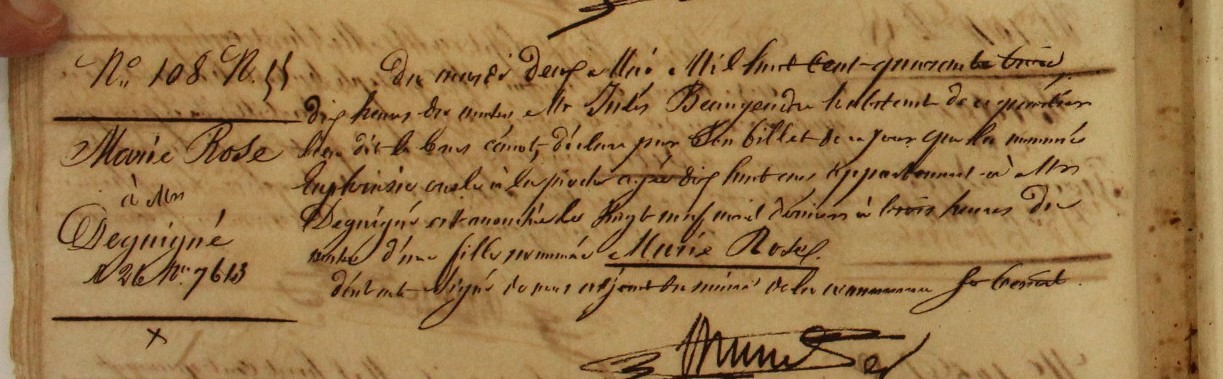 N° 108 R. 55
Marie Rose
à Mr
Deguigné
R 26 N° 7613
Du mardi deux Mai Mil huit cent quarante trois
dix heures du matin Mr Jules Beaugendre habitant de ce quartier
lieu dit le bras canot, déclare par son billet de ce jour que la nommée
Euphrosine créole à la pioche agée dix huit ans appartenant à Mr
Deguigné est accouchée le vingt neuf avril dernier à trois heures du
matin d'une fille nommée Marie Rose.
dont acte signé de nous adjoint du maire de la commune